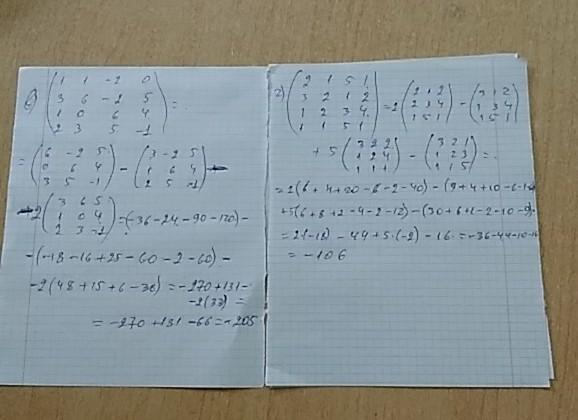 в) ( 1 1 -2 0
3 6 -2 5
1 0 6 4
2 3 5 -1 ) =
= ( 6 -2 5
0 6 4
3 5 -1 ) - ( 3 -2 5
1 6 4
2 5 -1 ) -
-2 ( 3 6 5
1 0 4
2 3 -1 ) = (-36-24-90-120) -
- (-18-16+25-60-2-60) -
-2(48+15+6-36) = -270+131-
-2(33) =
= -270+131-66=-205
г) ( 2 1 5 1
3 2 1 2
1 2 3 4
1 1 5 1 ) = 2 ( 2 1 2
2 3 4
1 5 1 ) - ( 3 1 2
1 3 4
1 5 1 )
+ 5 ( 3 2 2
1 2 4
1 1 1 ) - ( 3 2 1
1 2 3
1 1 5 ) =
= 2(6+4+20-6-2-40) - (9+4+10-6-
+5(6+8+2-4-2-12) - (30+6+1-2-10-9)=
= 2(-18) - 44+5·(-2) - 16=-36-44-10-16
= -106